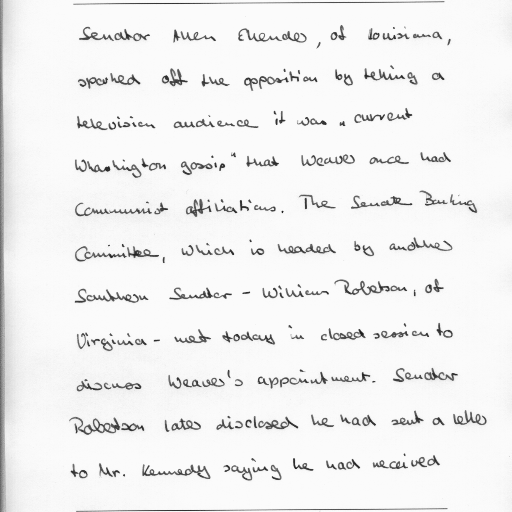 Senator Allen Ellender, of Louisiana,
sparked off the opposition by telling a
television audience it was "current
Whashington gossip" that Weaver once had
Communist affiliations. The Senate Banking
Committee, which is headed by another
Southern Senator - Williams Robertson, of
Virginia - met today in closed session to
discuss Weaver's appointment. Senator
Robertson later disclosed he had sent a letter
to Mr. Kennedy saying he had received